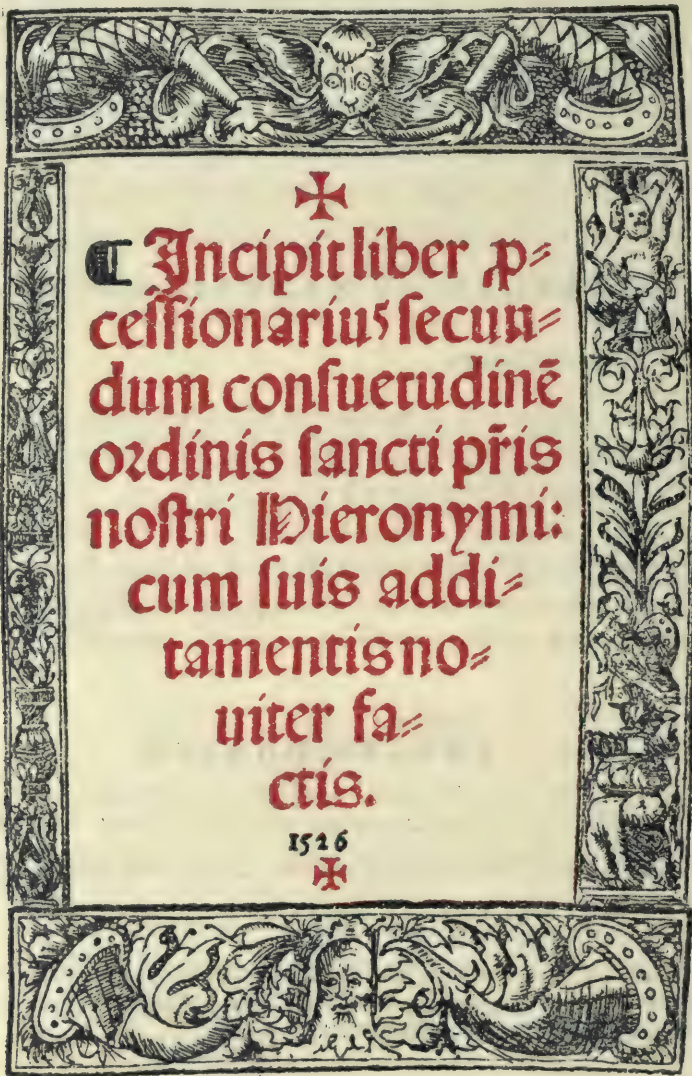 ✠
⸿ Incipit liber ꝓ⸗
ceſſionariuꝰ ſecun⸗
dum conſuetudinē
oꝛdinis ſancti pr̃is
noſtri Hieronymi:
cum ſuis addi⸗
tamentis no⸗
uiter fa⸗
ctis.
1526
✠